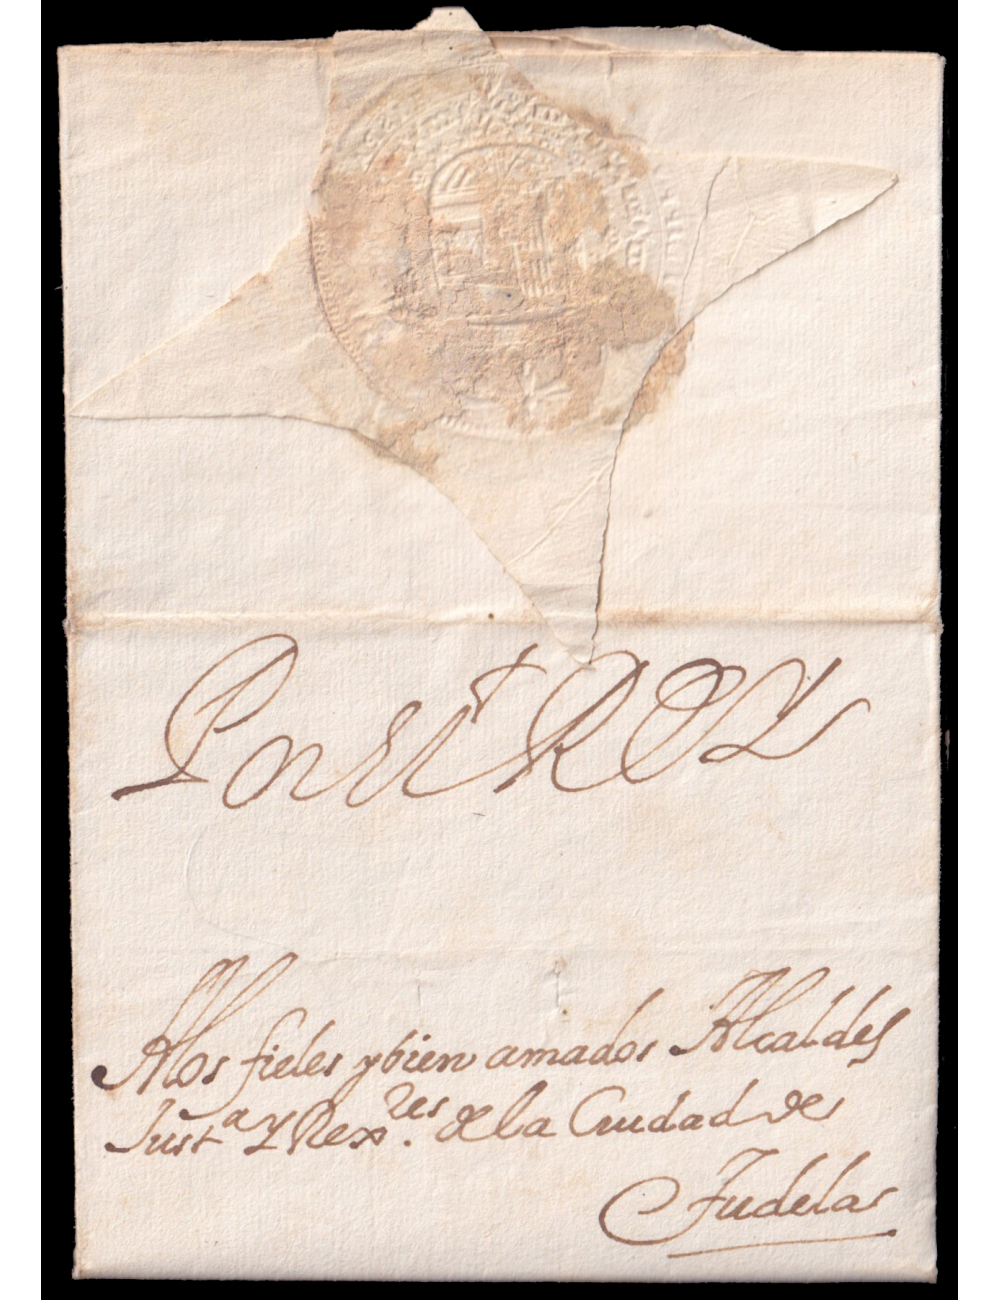 Por el REY
A los fieles y bien amados Alcaldes
Just.ª Y Rex.res de la Ciudad de
Tudela